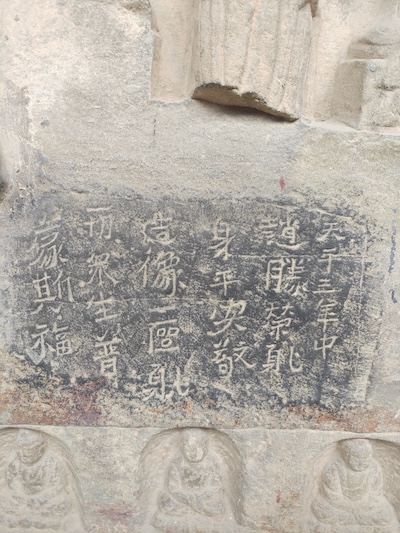 天平三年中
趙勝榮躭
身平安敬
造像二區躭
一切衆生普
蒙斯福